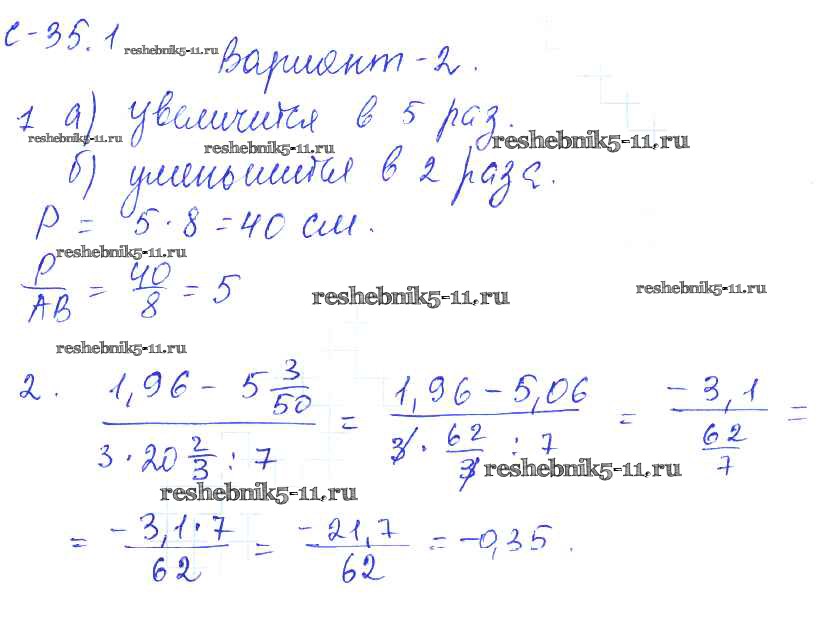 С-35.1 reshebnik5-11.ru
Вариант-2.
1 а) увеличится в 5 раз.
reshebnik5-11.ru reshebnik5-11.ru reshebnik5-11.ru
б) уменьшится в 2 раза.
P = 5·8 = 40 см.
reshebnik5-11.ru
P/AB = 40/8 = 5
reshebnik5-11.ru reshebnik5-11.ru
reshebnik5-11.ru
2. (1,96 - 5 3/50)/(3·20 2/3 : 7) = (1,96 - 5,06)/(3·62/3 : 7) = (-3,1)/(62/7) =
reshebnik5-11.ru reshebnik5-11.ru
= (-3,1·7)/62 = (-21,7)/62 = -0,35.